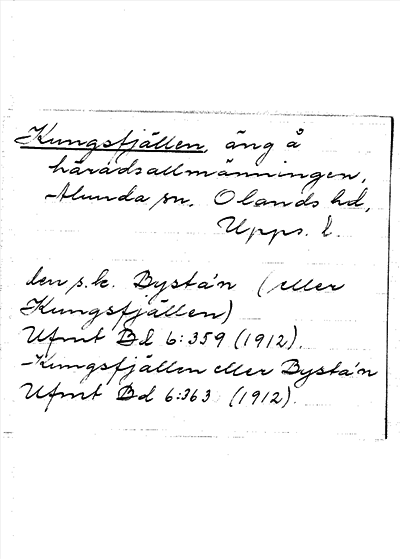 Kungsfjällen, äng å
häradsallmänningen,
Alunda sn, Olands hd,
Upps. l.
den s.k. Bysta'n (eller
Kungsfjällen)
Ufmt Bd 6:359 (1912).
Kungsfjällen eller Bysta'n
Ufmt Bd 6:363 (1912).